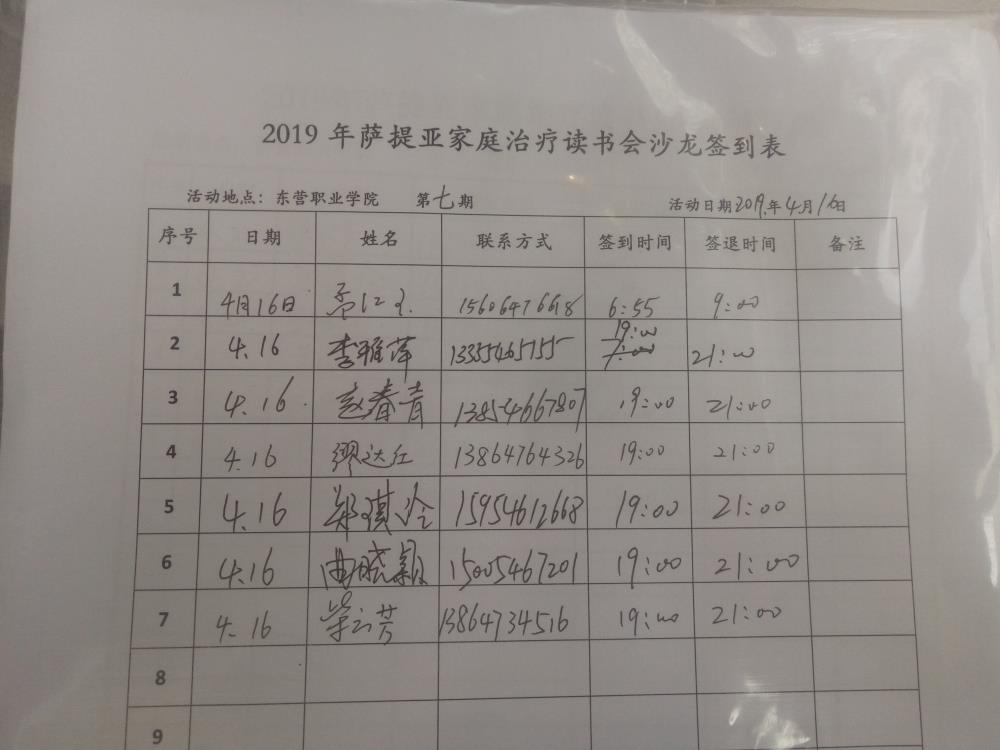 2019 年萨提亚家庭治疗读书会沙龙签到表
活动地点：东营职业学院 第七期 活动日期2019年4月16日
序号 日期 姓名 联系方式 签到时间 签退时间 备注
1 4月16日 15606476618 6:55 9:00
2 4.16 李雅萍 13355465755 19:00 7:00 21:00
3 4.16 赵春青 13854667807 19:00 21:00
4 4.16 缪达红 13864764326 19:00 21:00
5 4.16 郑琪玲 15954612668 19:00 21:00
6 4.16 曲晓颖 15005467201 19:00 21:00
7 4.16 柴云芳 13864734516 19:00 21:00
8
9